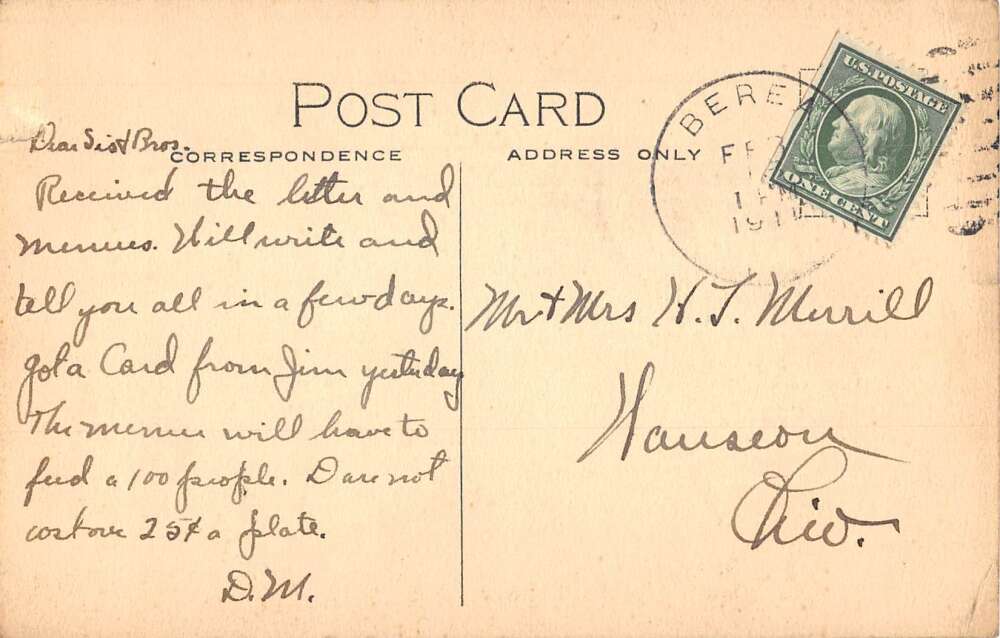 POST CARD
CORRESPONDENCE
ADDRESS ONLY
BEREA
FEB
1 PM
191
U.S. POSTAGE
ONE CENT
Dear Sis & Bros.
Received the letter and
menues. Will write and
tell you all in a few days.
Got a Card from Jim yesterday
The menue will have to
feed a 100 people. Dare not
cost over 25¢ a plate.
D.M.
Mr & Mrs H. S. Merrill
Wauseon
Ohio.